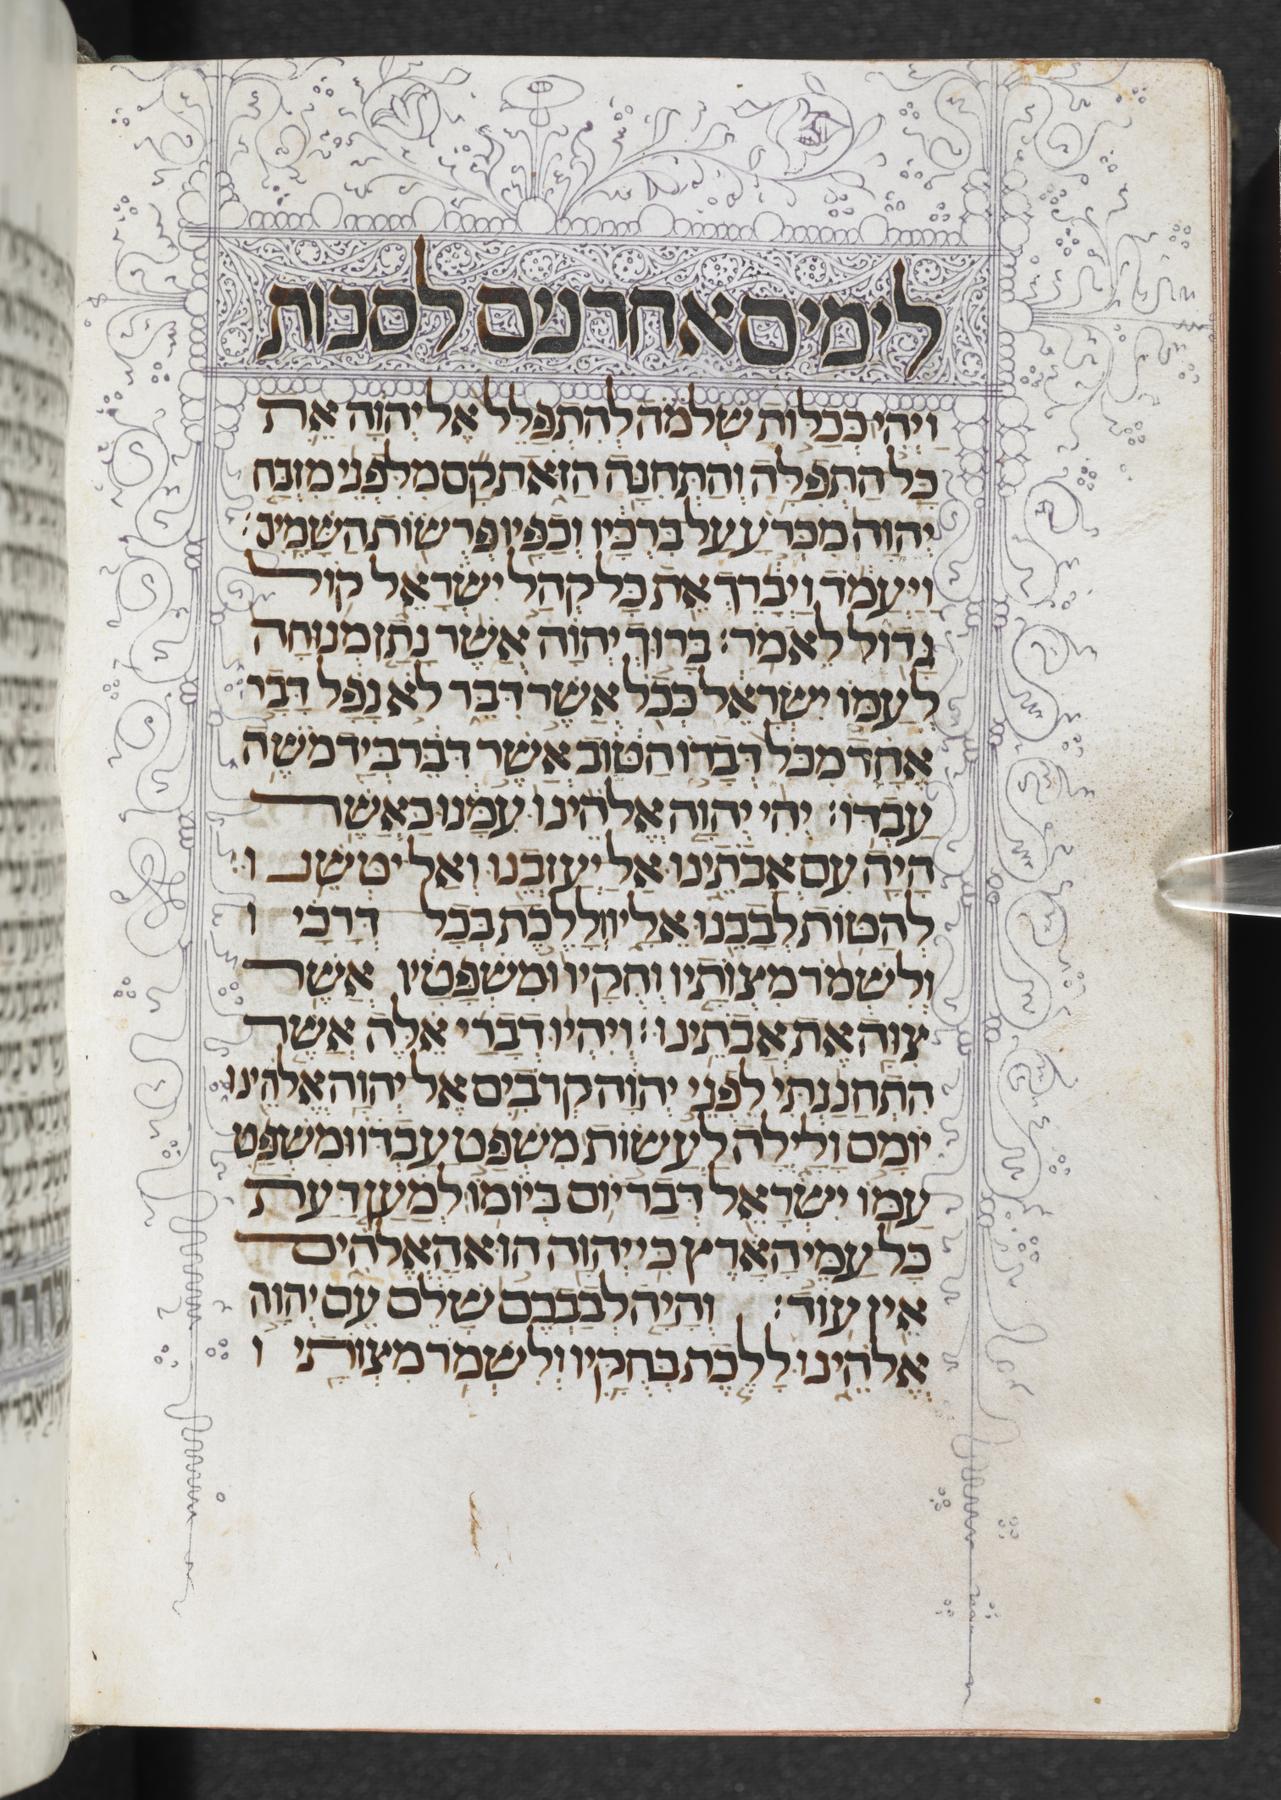 לימים אחרנים לסכות
וַיְהִי כְּכַלּוֹת שְׁלֹמֹה לְהִתְפַּלֵּל אֶל יְהוָה אֵת
כָּל הַתְּפִלָּה וְהַתְּחִנָּה הַזֹּאת קָם מִלִּפְנֵי מִזְבַּח
יְהוָה מִכְּרֹעַ עַל בִּרְכָּיו וְכַפָּיו פְּרֻשׂוֹת הַשָּׁמָיִם׃
וַיַּעֲמֹד וַיְבָרֶךְ אֵת כָּל קְהַל יִשְׂרָאֵל קוֹל
גָּדוֹל לֵאמֹר׃ בָּרוּךְ יְהוָה אֲשֶׁר נָתַן מְנוּחָה
לְעַמּוֹ יִשְׂרָאֵל כְּכֹל אֲשֶׁר דִּבֵּר לֹא נָפַל דָּבָר
אֶחָד מִכֹּל דְּבָרוֹ הַטּוֹב אֲשֶׁר דִּבֶּר בְּיַד מֹשֶׁה
עַבְדּוֹ׃ יְהִי יְהוָה אֱלֹהֵינוּ עִמָּנוּ כַּאֲשֶׁר
הָיָה עִם אֲבֹתֵינוּ אַל יַעַזְבֵנוּ וְאַל יִטְּשֵׁנוּ׃
לְהַטּוֹת לְבָבֵנוּ אֵלָיו לָלֶכֶת בְּכָל דְּרָכָיו
וְלִשְׁמֹר מִצְוֹתָיו וְחֻקָּיו וּמִשְׁפָּטָיו אֲשֶׁר
צִוָּה אֶת אֲבֹתֵינוּ׃ וְיִהְיוּ דְבָרַי אֵלֶּה אֲשֶׁר
הִתְחַנַּנְתִּי לִפְנֵי יְהוָה קְרֹבִים אֶל יְהוָה אֱלֹהֵינוּ
יוֹמָם וָלָיְלָה לַעֲשׂוֹת מִשְׁפַּט עַבְדּוֹ וּמִשְׁפַּט
עַמּוֹ יִשְׂרָאֵל דְּבַר יוֹם בְּיוֹמוֹ׃ לְמַעַן דַּעַת
כָּל עַמֵּי הָאָרֶץ כִּי יְהוָה הוּא הָאֱלֹהִים
אֵין עוֹד׃ וְהָיָה לְבַבְכֶם שָׁלֵם עִם יְהוָה
אֱלֹהֵינוּ לָלֶכֶת בְּחֻקָּיו וְלִשְׁמֹר מִצְוֹתָיו